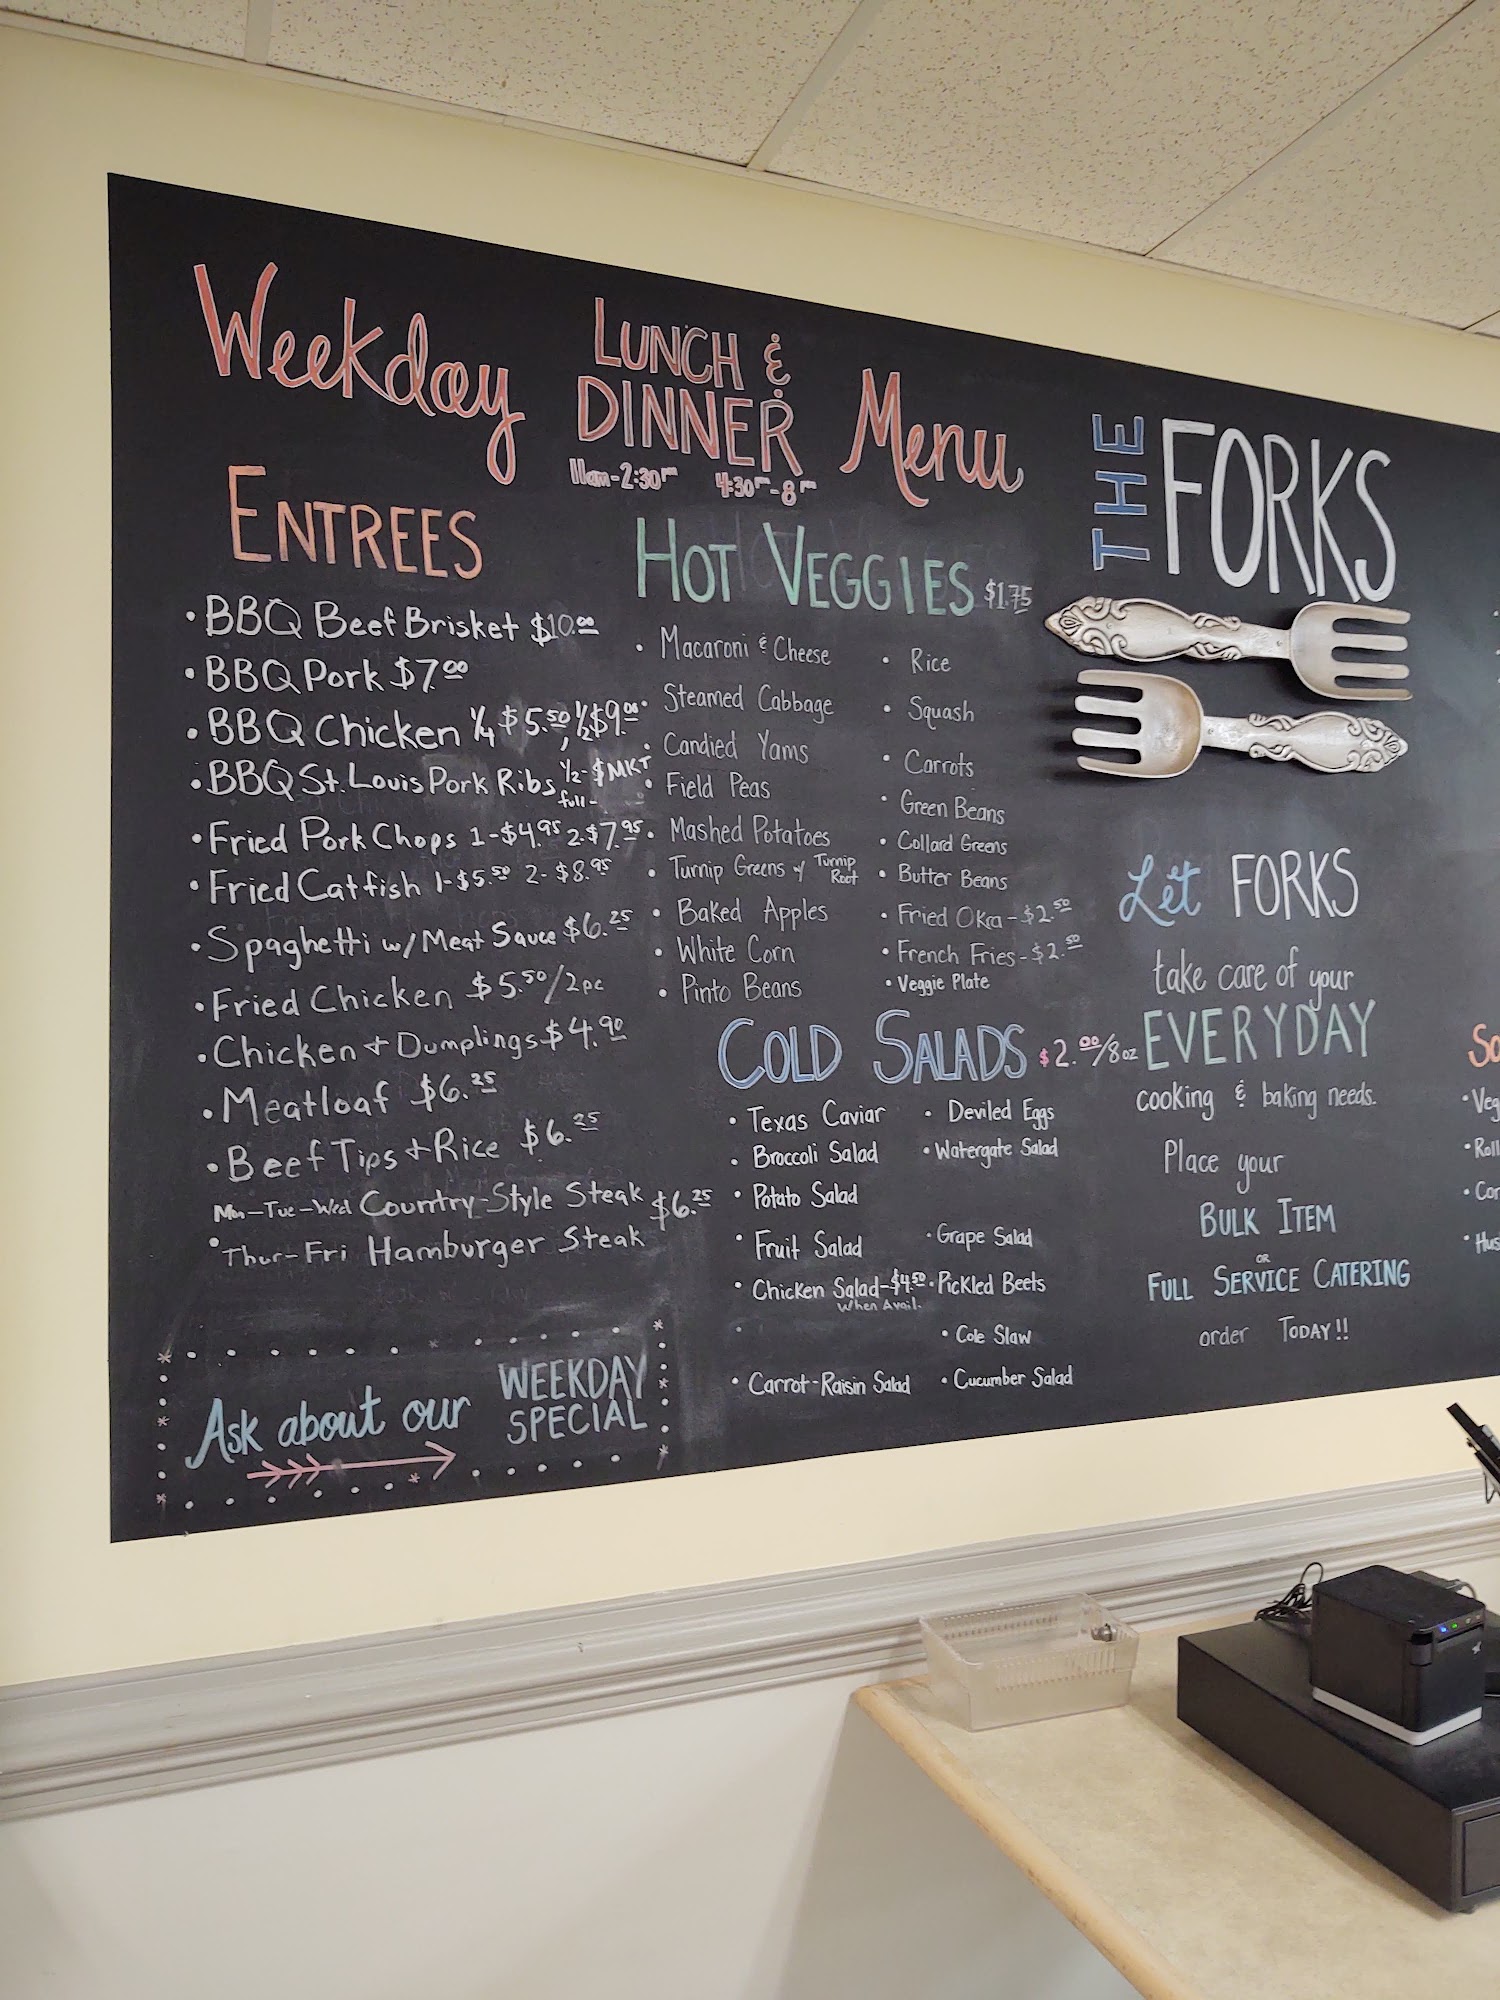 Weekday LUNCH & DINNER Menu
11am-2:30pm 4:30pm-8pm
ENTREES
• BBQ Beef Brisket $10.00
• BBQ Pork $7.00
• BBQ Chicken 1/4 $5.50, 1/2 $9.00
• BBQ St. Louis Pork Ribs 1/2- $MKT
full-
• Fried Pork Chops 1-$4.95 2-$7.95
• Fried Catfish 1-$5.50 2-$8.95
• Spaghetti w/ Meat Sauce $6.25
• Fried Chicken $5.50/2pc
• Chicken + Dumplings $4.90
• Meatloaf $6.25
• Beef Tips + Rice $6.25
Mon-Tue-Wed Country-Style Steak $6.25
• Thur-Fri Hamburger Steak
Ask about our WEEKDAY SPECIAL
HOT VEGGIES $1.75
• Macaroni & Cheese
• Steamed Cabbage
• Candied Yams
• Field Peas
• Mashed Potatoes
• Turnip Greens w/ Turnip Root
• Baked Apples
• White Corn
• Pinto Beans
• Rice
• Squash
• Carrots
• Green Beans
• Collard Greens
• Butter Beans
• Fried Okra-$2.50
• French Fries-$2.50
• Veggie Plate
COLD SALADS $2.00/8oz
• Texas Caviar
• Broccoli Salad
• Potato Salad
• Fruit Salad
• Chicken Salad-$4.50
When Avail.
• Carrot-Raisin Salad
• Deviled Eggs
• Watergate Salad
• Grape Salad
• Pickled Beets
• Cole Slaw
• Cucumber Salad
THE FORKS
Let FORKS
take care of your
EVERYDAY
cooking & baking needs.
Place your
BULK ITEM
OR
FULL SERVICE CATERING
order TODAY!!
So
• Veg
• Roll
• Cor
• Hus